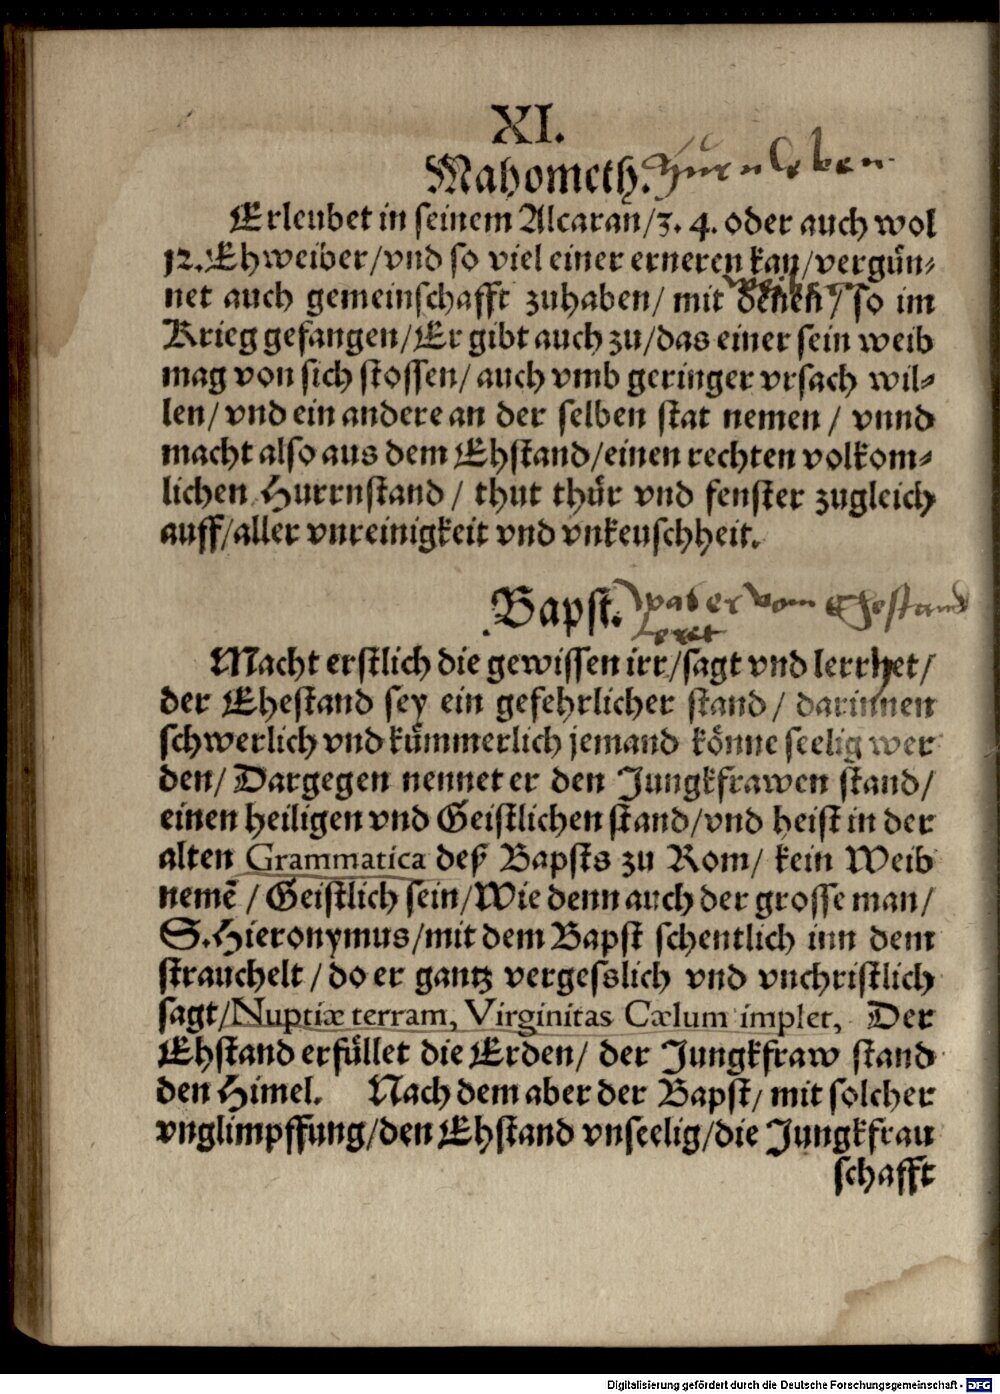 XI.
Mahometh. Hurnleben
Erleubet in seinem Alcaran/3. 4. oder auch wol
12. Ehweiber/vnd so viel einer erneren kan/vergün⸗
net auch gemeinschafft zuhaben/ mit denen / so im
Krieg gefangen/Er gibt auch zu/das einer sein weib
mag von sich stossen/ auch vmb geringer vrsach wil⸗
len/ vnd ein andere an der selben stat nemen / vnnd
macht also aus dem Ehstand/einen rechten volkom⸗
lichen Hurrnstand / thut thür vnd fenster zugleich
auff/aller vnreinigkeit vnd vnkeuschheit.
Bapst. was er vom Ehestand
leret
Macht erstlich die gewissen irr/sagt vnd lerrhet/
der Ehestand sey ein gefehrlicher stand / darinnen
schwerlich vnd kümmerlich jemand könne seelig wer
den/ Dargegen nennet er den Jungkfrawen stand/
einen heiligen vnd Geistlichen stand/vnd heist in der
alten Grammatica deß Bapsts zu Rom/ kein Weib
nemē / Geistlich sein/Wie denn auch der grosse man/
S. Hieronymus/mit dem Bapst schentlich inn dem
strauchelt / do er gantz vergesslich vnd vnchristlich
sagt/Nuptiæ terram, Virginitas Cælum implet, Der
Ehstand erfüllet die Erden/ der Jungkfraw stand
den Himel. Nach dem aber der Bapst/ mit solcher
vnglimpffung/den Ehstand vnseelig/die Jungkfrau
schafft
Digitalisierung gefördert durch die Deutsche Forschungsgemeinschaft - DFG